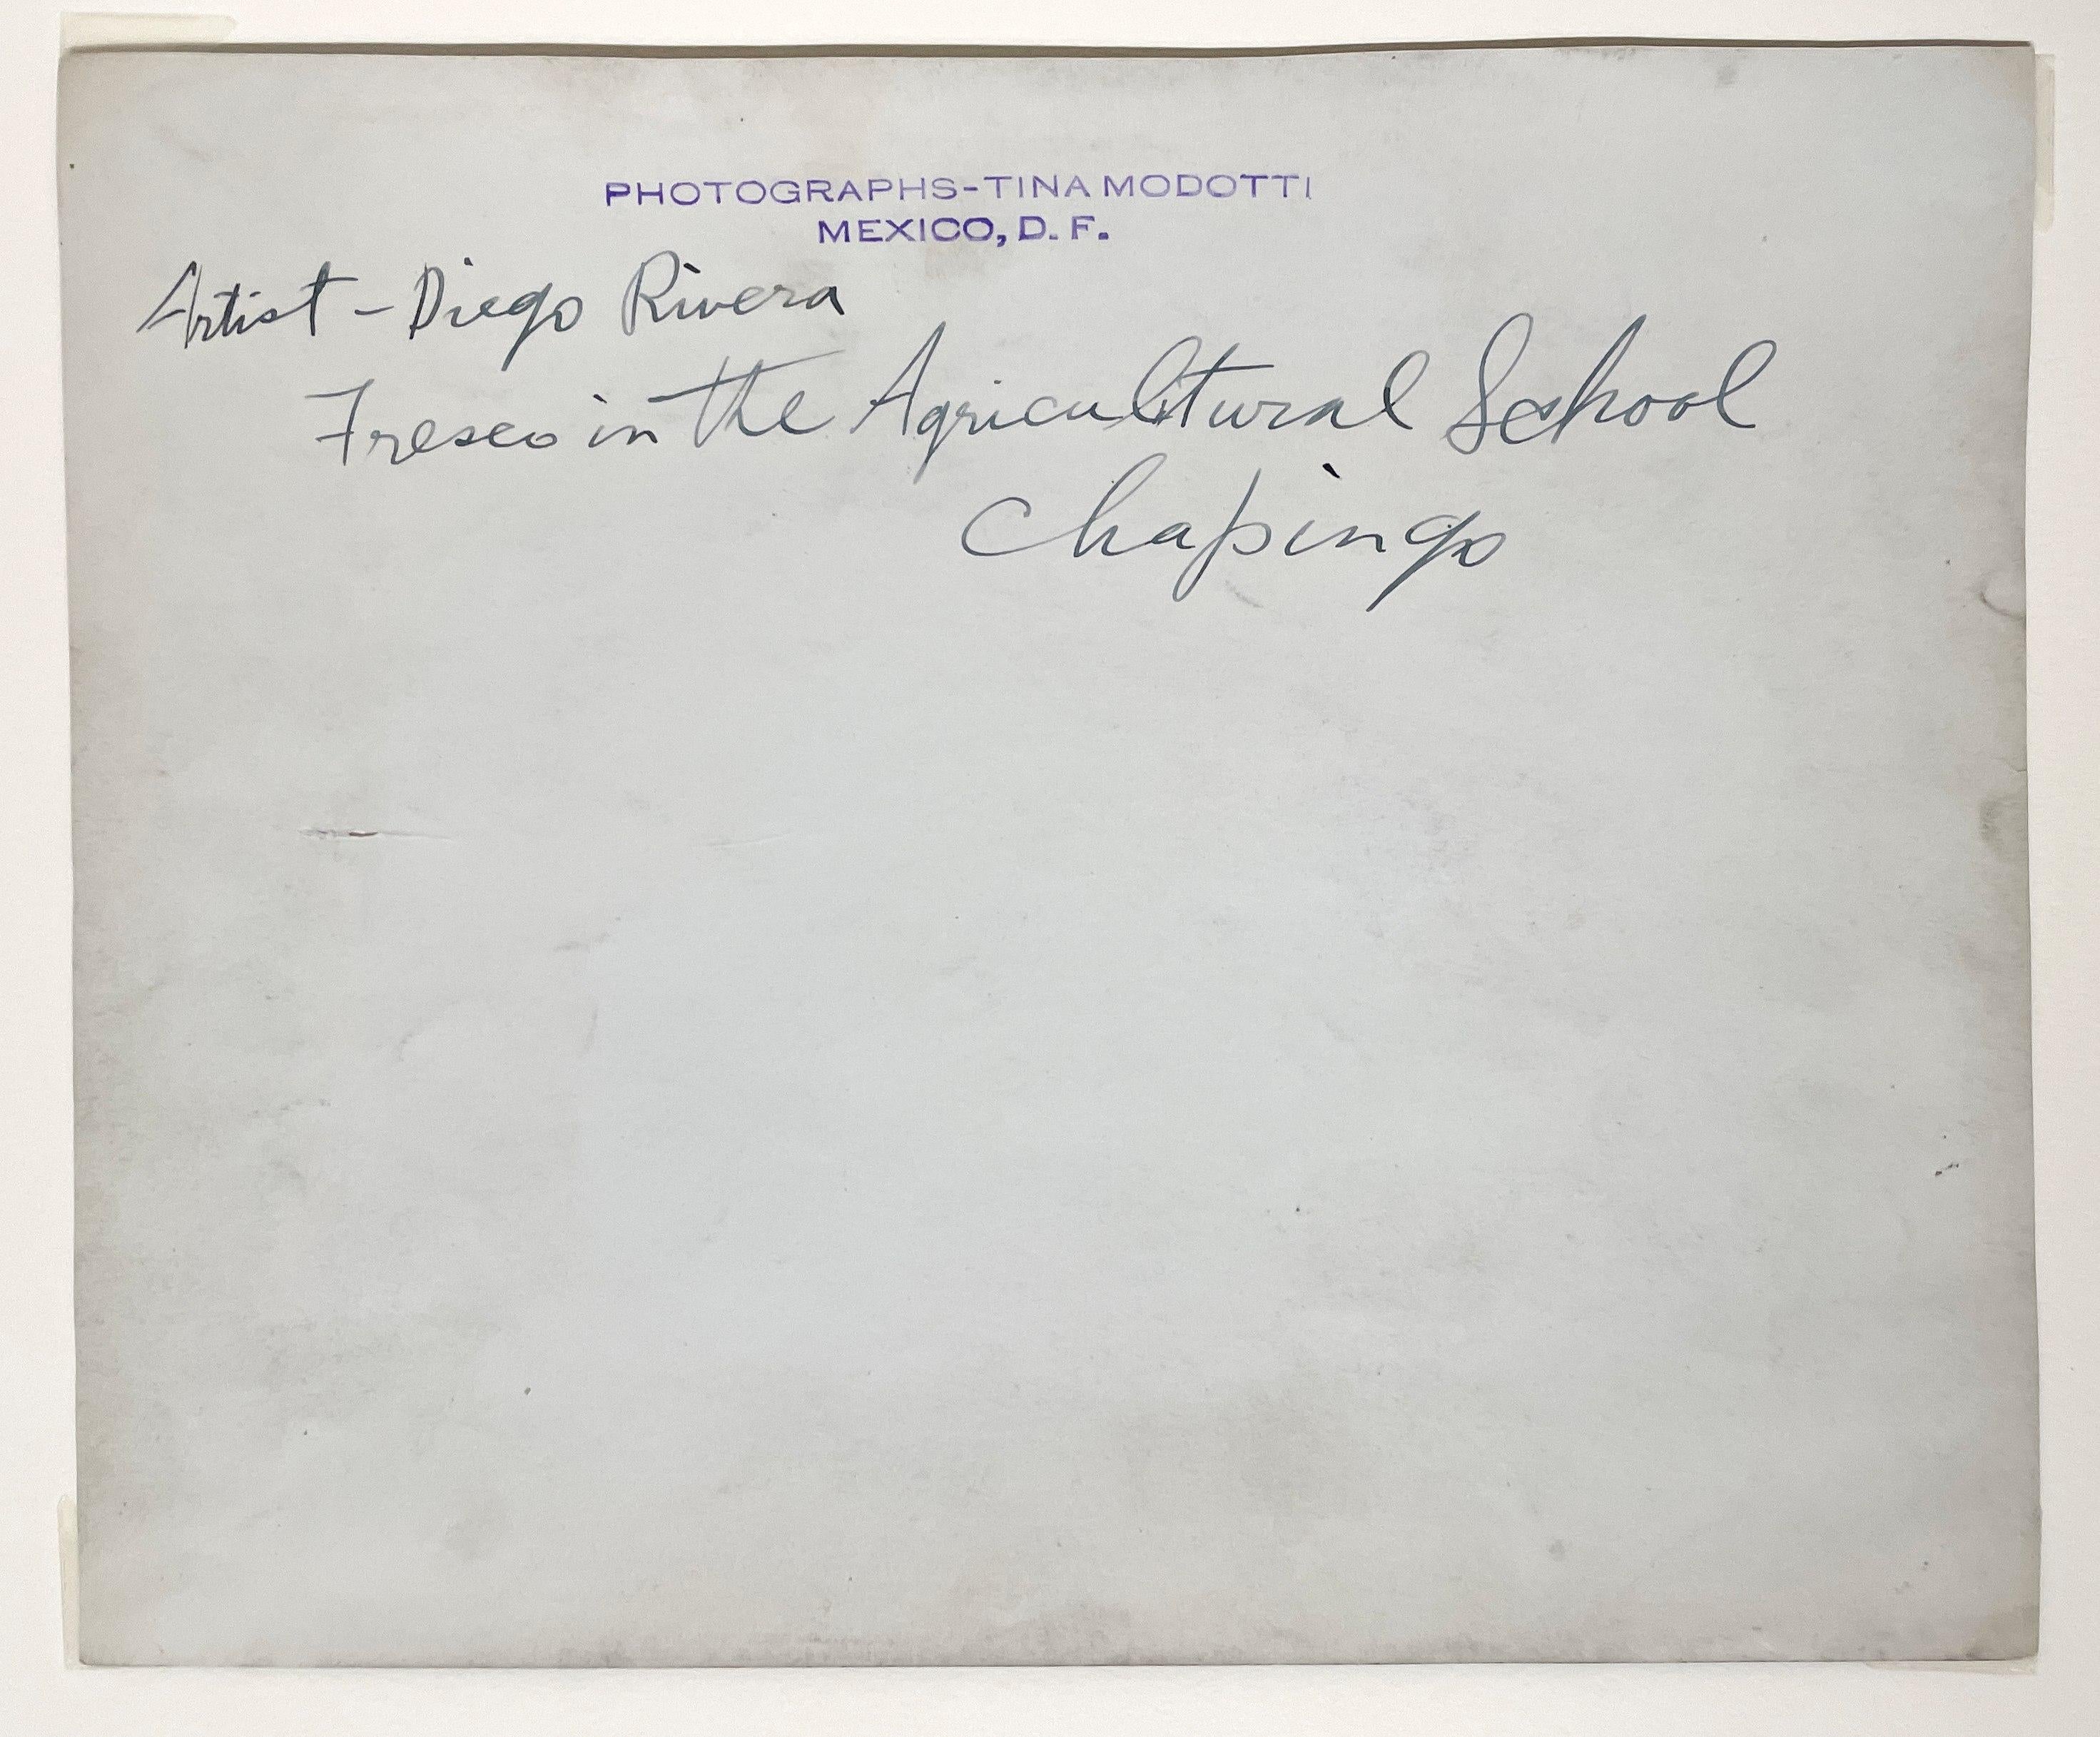 PHOTOGRAPHS-TINA MODOTTI
MEXICO, D. F.
Artist - Diego Rivera
Fresco in the Agricultural School
Chapingo